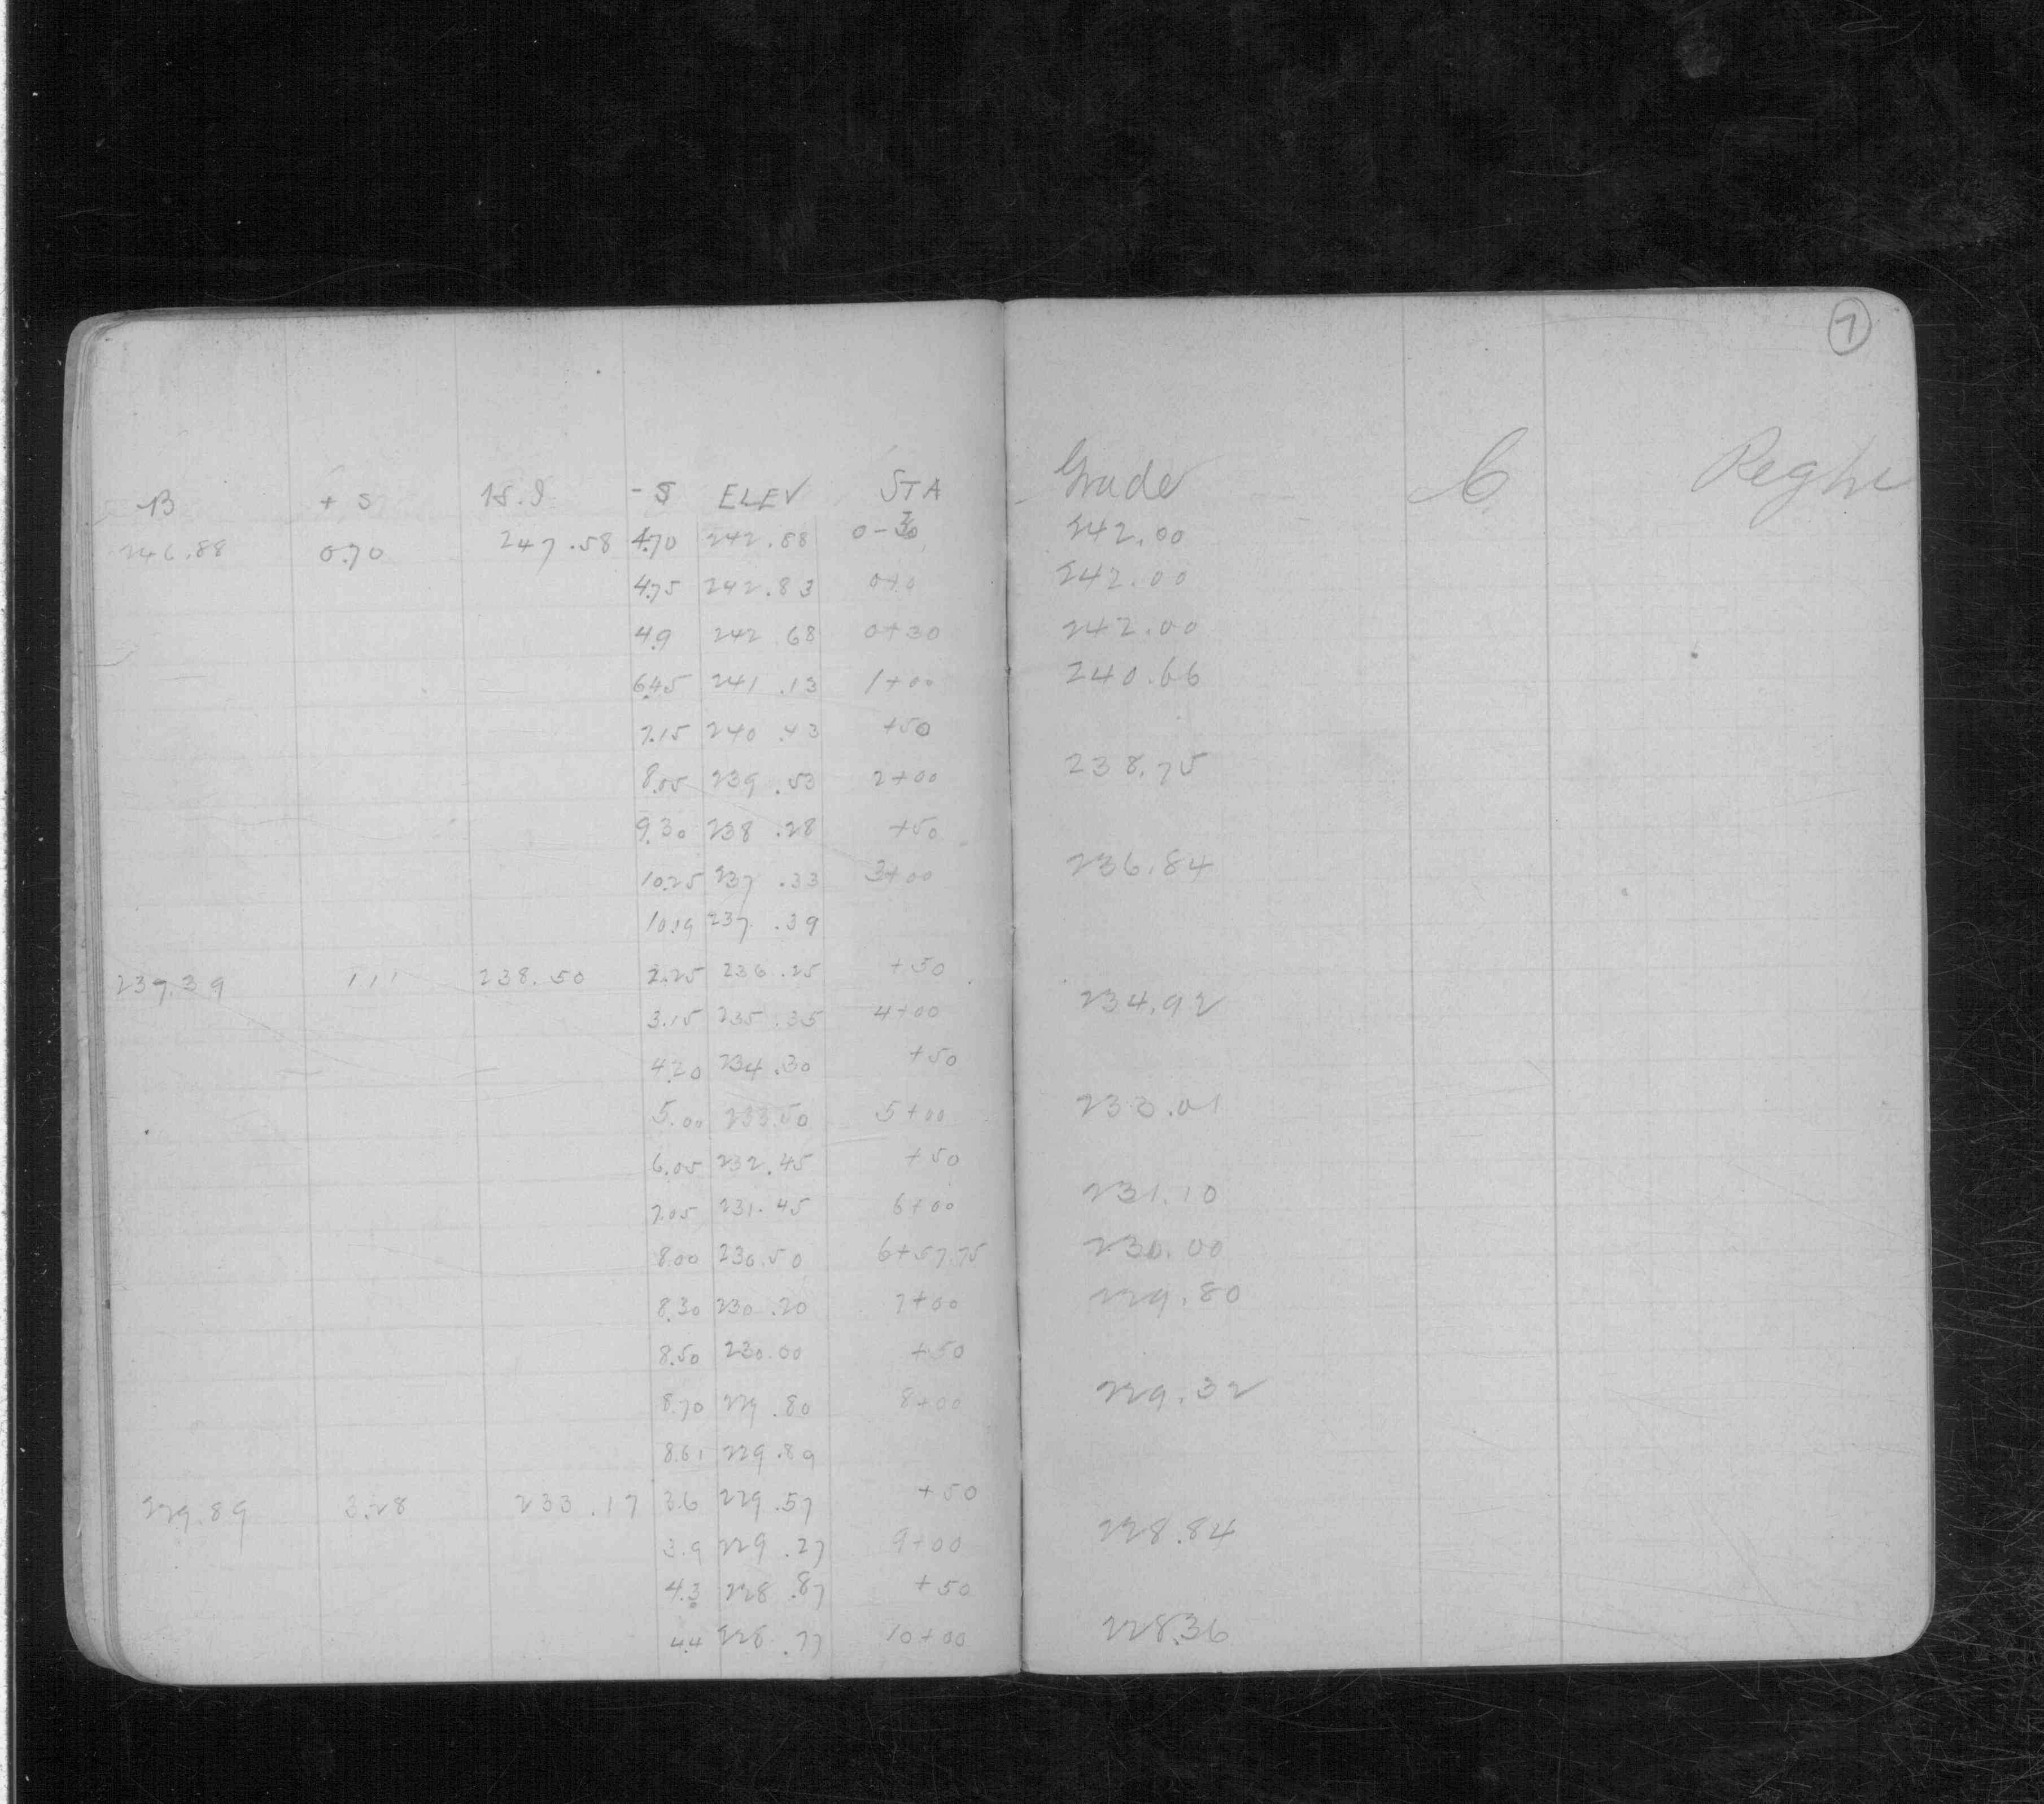 7
B + S H.I - S ELEV STA Grade C. Right
246.88 0.70 247.58 4.70 242.88 0-30 242.00
4.75 242.83 0+0 242.00
4.9 242.68 0+30 242.00
6.45 241.13 1+00 240.66
7.15 240.43 +50
8.05 239.53 2+00 238.75
9.30 238.28 +50
10.25 237.33 3+00 236.84
10.19 237.39
237.39 1.11 238.50 2.25 236.25 +50
3.15 235.35 4+00 234.92
4.20 234.30 +50
5.00 233.50 5+00 233.01
6.05 232.45 +50
7.05 231.45 6+00 231.10
8.00 230.50 6+57.75 230.00
8.30 230.20 7+00 229.80
8.50 230.00 +50
8.70 229.80 8+00 229.32
8.61 229.89
229.89 3.28 233.17 3.6 229.57 +50
3.9 229.27 9+00 228.84
4.3 228.87 +50
4.4 228.77 10+00 228.36